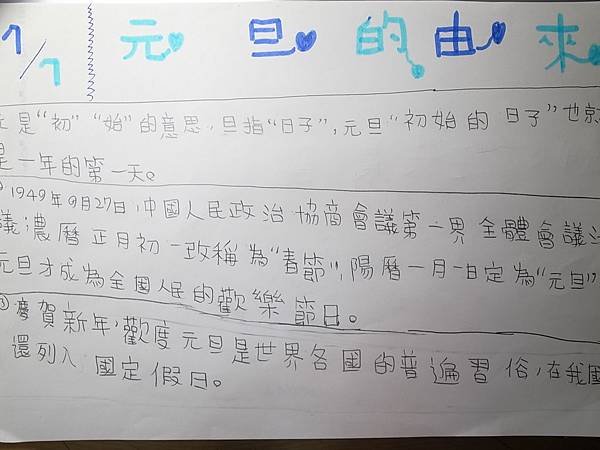 1/1 元旦的由來
是“初”“始”的意思,旦指“日子”,元旦“初始的日子”也就
是一年的第一天。
1949年9月27日,中國人民政治協商會議第一界全體會議決
議濃曆正月初一改稱為“春節”,陽曆一月一日定為“元旦”
元旦才成為全國人民的歡樂節日。
③慶賀新年,歡度元旦是世界各國的普遍習俗,在我國
還列入國定假日。